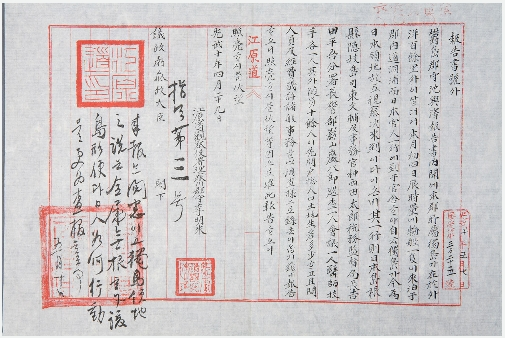 報告書號外
鬱島郡守沈興澤報告書內開에本郡所屬獨島가在於外
洋百餘里外이살더니本月初四日辰時量에輪船一隻이來泊于
郡內道洞浦而日本官人一行이到于官舍ᄒᆞ야自云獨島가今爲
日本領地故로視察次來到이다이온바其一行則日本島根
縣隱岐島司東文輔及事務官神西由太郞稅務監督局長吉
田平吾分署長警部影山巖八郞巡査一人會議員一人醫師技
手各一人其外隨員十餘人이先問戶摠人口土地生産多少ᄒᆞ고且問
人員及經費幾許諸般事務를以調査樣으로錄去이ᄋᆞᆸ기玆에報告
ᄒᆞ오니照亮ᄒᆞ시믈伏望等因으로准此報告ᄒᆞ오니
照亮ᄒᆞ시믈伏望
江原道
光武十年四月二十九日
江原道觀察使署理春川郡守李明來
議政府參政大臣 閣下
指令第三號
來報는閱悉이고獨島領地
之說은全屬無根ᄒᆞ나該
島形便과日人如何行動
을更爲査報ᄒᆞᆯ事